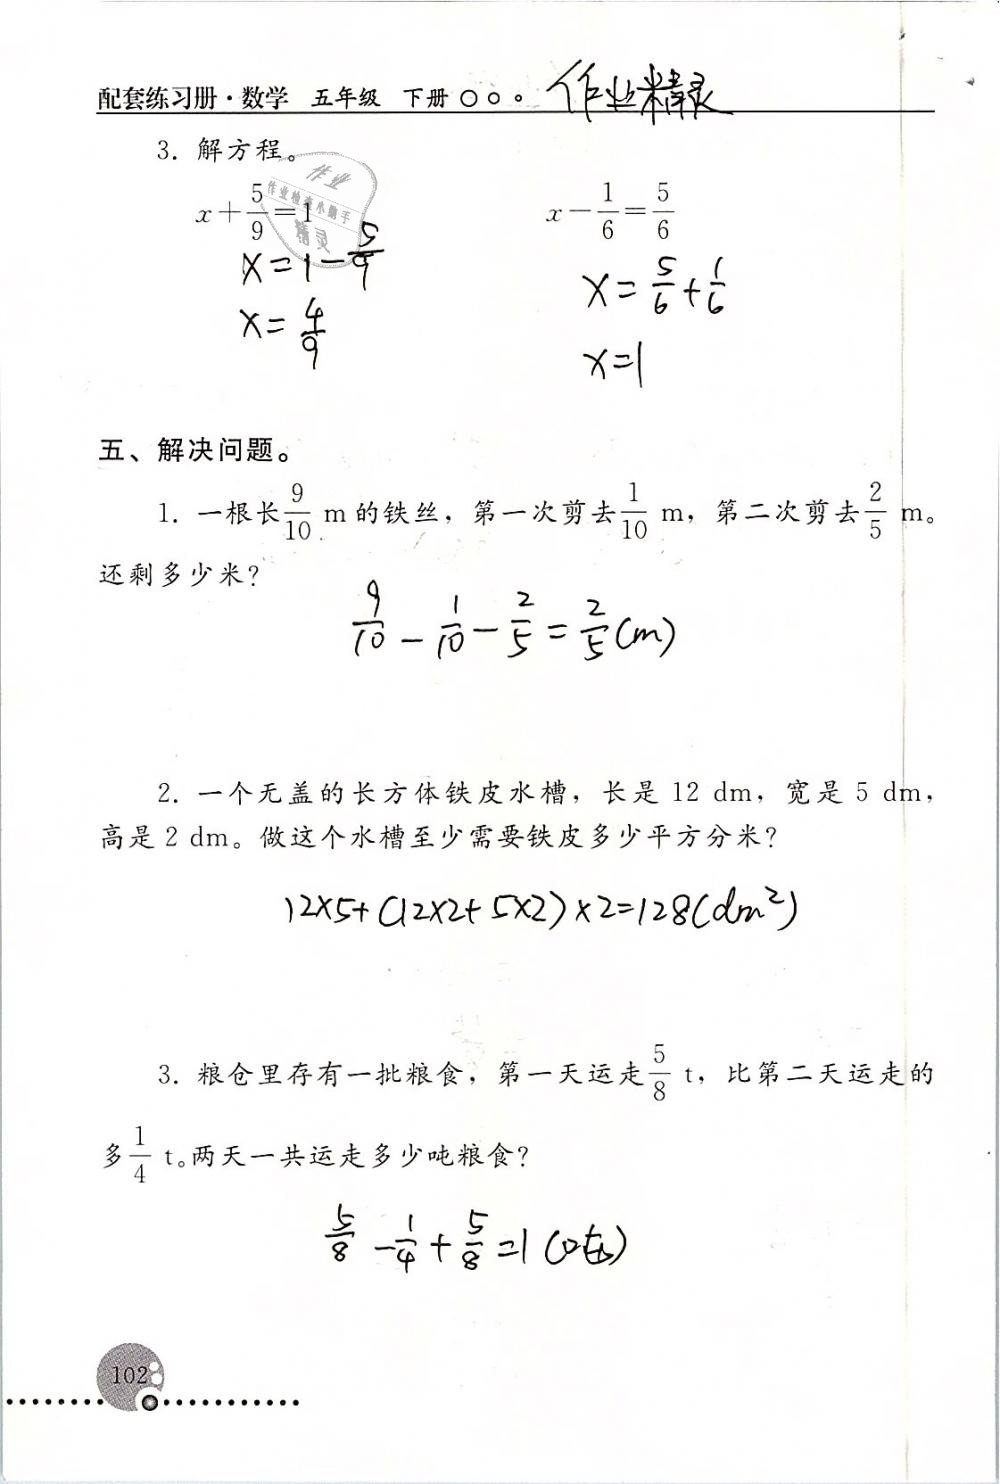 配套练习册·数学 五年级 下册 作业精灵
3. 解方程。
x+5/9=1 x-1/6=5/6
x=1-5/9 x=5/6+1/6
x=4/9 x=1
五、解决问题。
1. 一根长9/10 m的铁丝，第一次剪去1/10 m，第二次剪去2/5 m。
还剩多少米？
9/10-1/10-2/5=2/5(m)
2. 一个无盖的长方体铁皮水槽，长是 12 dm，宽是 5 dm，
高是 2 dm。做这个水槽至少需要铁皮多少平方分米？
12×5+(12×2+5×2)×2=128(dm²)
3. 粮仓里存有一批粮食，第一天运走5/8 t，比第二天运走的
多1/4 t。两天一共运走多少吨粮食？
5/8-1/4+5/8=1(吨)
102
作业
作业检查小助手
精灵